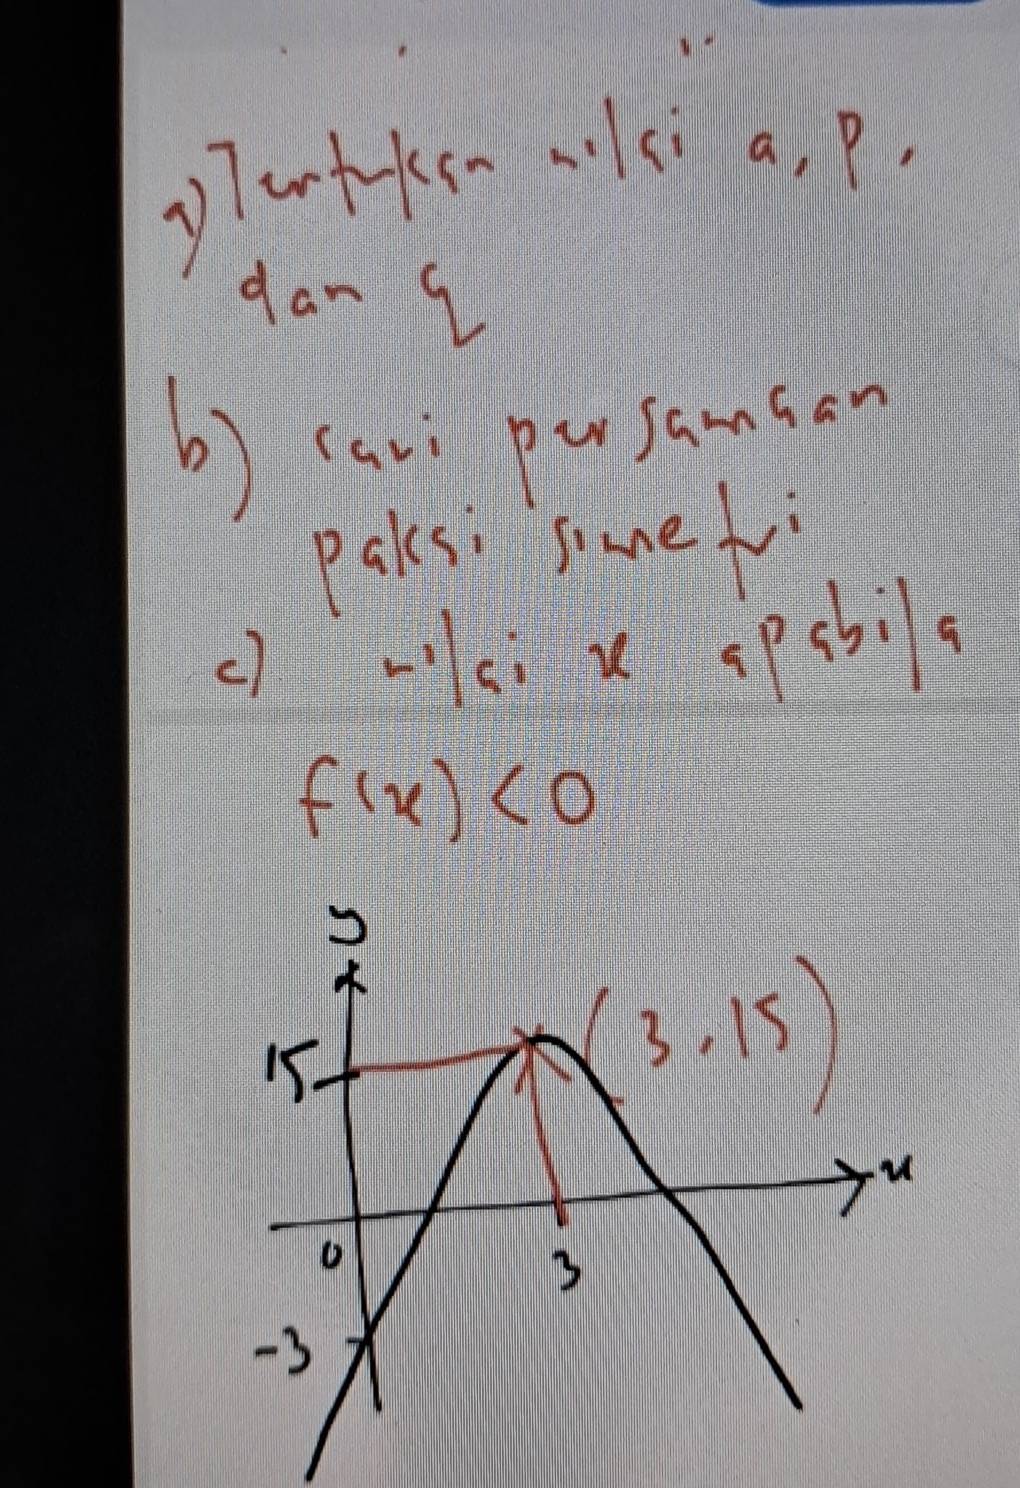 a) Tentukan nilai a, p,
dan q
b) cari persamaan
paksi simetri
c) nilai x apabila
f(x) < 0
y
15
(3, 15)
x
0
3
-3